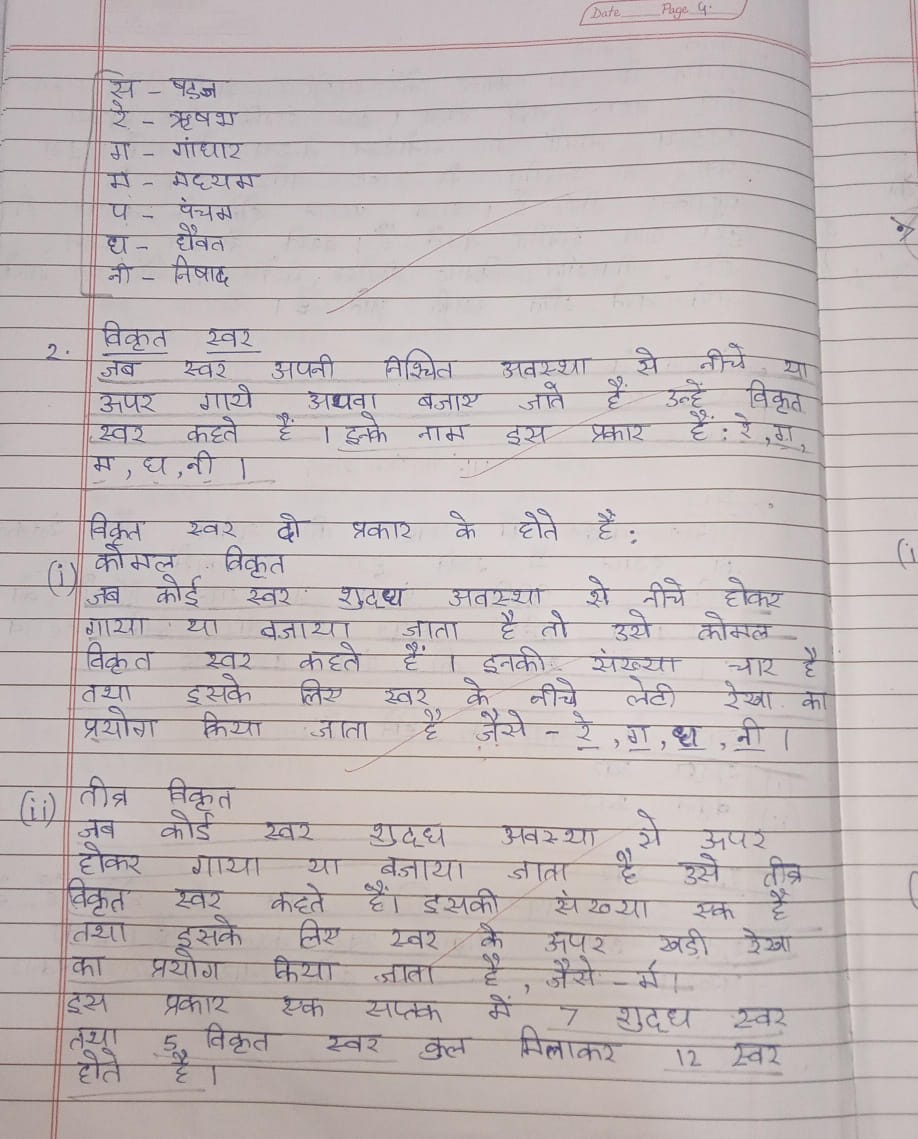 Date Page 4.
स - षड्ज
रे - ऋषभ
ग - गांधार
म - मध्यम
प - पंचम
ध - धैवत
नी - निषाद
2. विकृत स्वर
जब स्वर अपनी निश्चित अवस्था से नीचे या
ऊपर गाये अथवा बजाए जाते हैं उन्हें विकृत
स्वर कहते हैं । इनके नाम इस प्रकार हैं : रे , ग ,
म , ध , नी ।
विकृत स्वर दो प्रकार के होते हैं :
(i) कोमल विकृत
जब कोई स्वर शुद्ध अवस्था से नीचे होकर
गाया या बजाया जाता है तो उसे कोमल
विकृत स्वर कहते हैं । इनकी संख्या चार है
तथा इसके लिए स्वर के नीचे लेटी रेखा का
प्रयोग किया जाता है जैसे - रे , ग , ध , नी ।
(ii) तीव्र विकृत
जब कोई स्वर शुद्ध अवस्था से ऊपर
होकर गाया या बजाया जाता है उसे तीव्र
विकृत स्वर कहते हैं। इसकी संख्या एक है
तथा इसके लिए स्वर के ऊपर खड़ी रेखा
का प्रयोग किया जाता है , जैसे - म॑ ।
इस प्रकार एक सप्तक में 7 शुद्ध स्वर
तथा 5 विकृत स्वर कुल मिलाकर 12 स्वर
होते है ।
(i